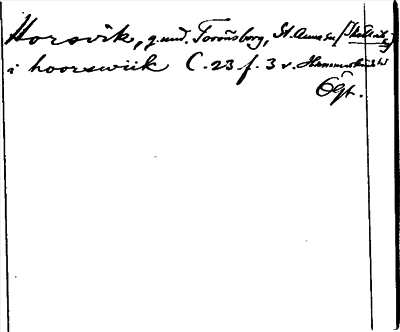 Horsvik, g. und. Torönsborg, St. Anna sn
i hoorswiik C. 23 f. 3 v. Hammarkinds hd
Ögt.